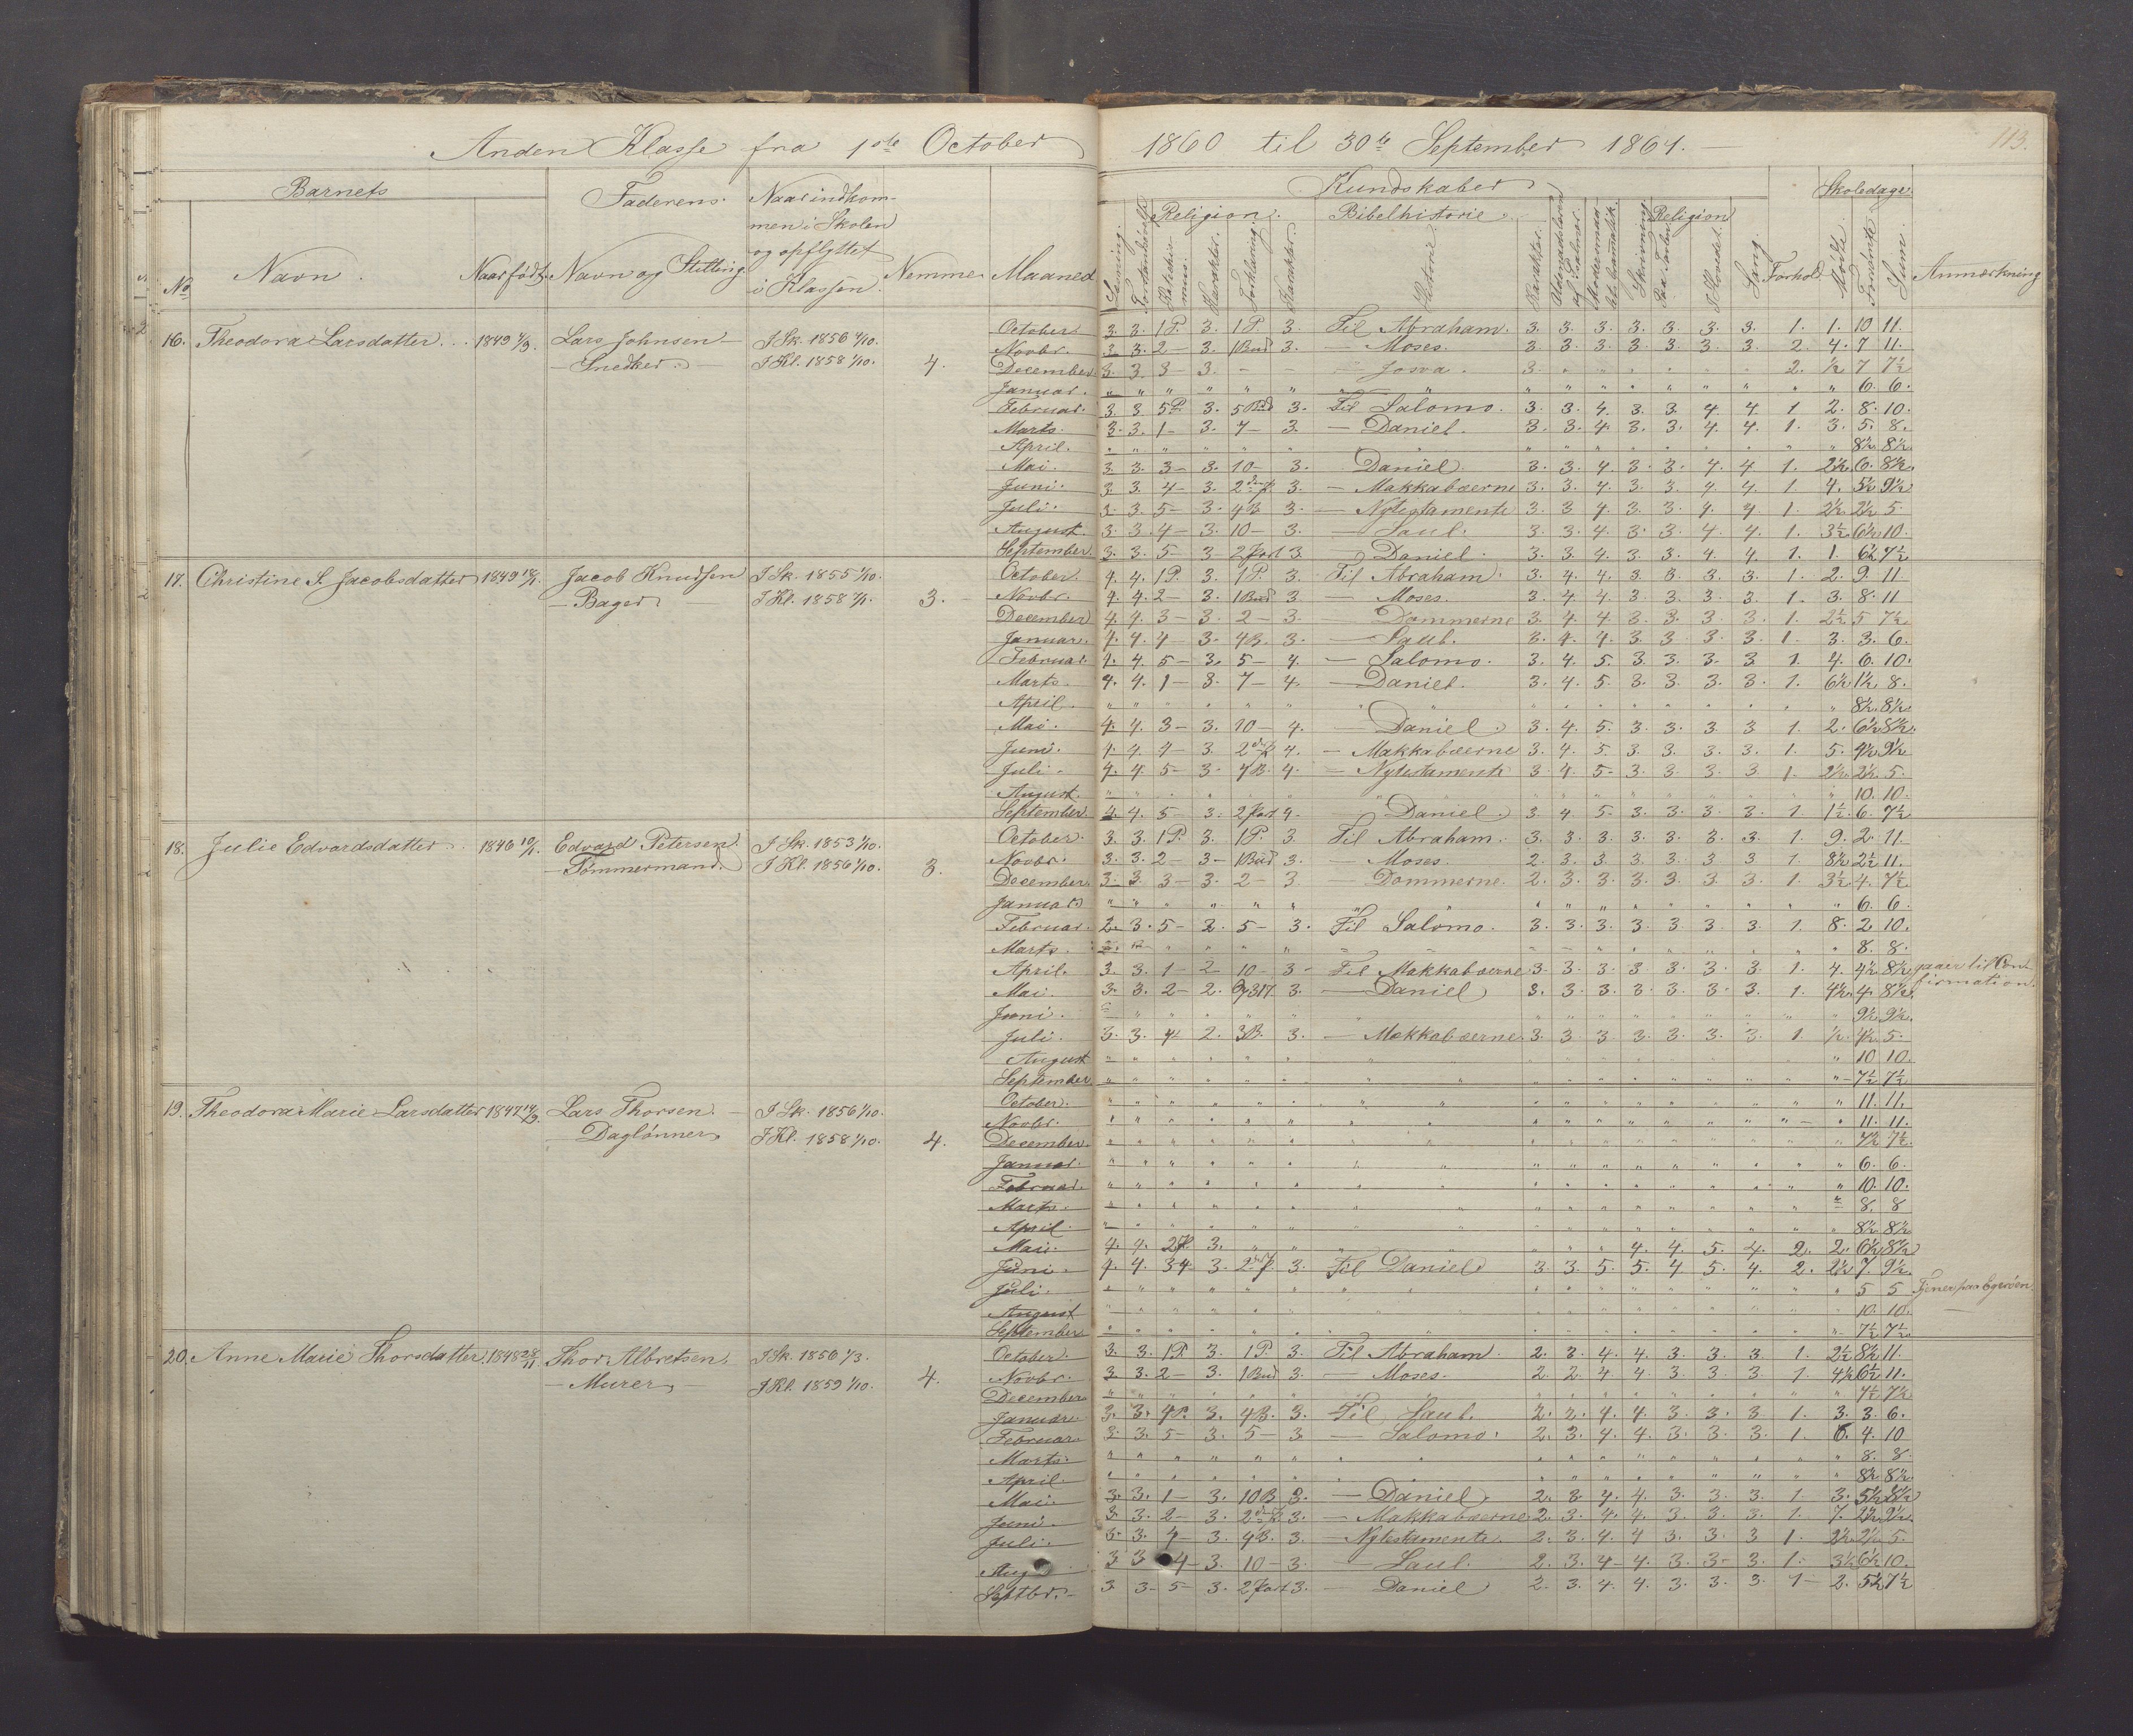 Anden Klasse fra 1ste October 1860 til 30te September 1861.
113.
Barnets Faderens Naar indkom- Kundskaber Skoledage
men i Skolen Religion. Bibelhistorie. Religion
og opflyttet
No Navn. Naar født. Navn og Stilling i Klassen. Nemme. Maaned Læsning. Karakter. Forklaring. Karakter. Historie. Karakter. Skrivning. Sang. Forhold. Mødte. Forsømte. Sum. Anmærkning
16. Theodora Larsdatter. Lars Johnsen I Sk. 1856 1/10. October. 3. 3. 1P. 3. 1P. 3. Til Abraham. 3. 3. 3. 3. 3. 3. 3. 1. 1. 10 11.
Snedker. I Kl. 1858 1/10. 4. Novbr. 3. 3. 2 - 3. 1Bud 3. - Moses. 3. 3. 3. 3. 3. 3. 3. 2. 4. 7 11.
December. 3. 3. 3 - 3. - - Josva. 3. 2. 1/2 7 7 1/2
Januar. 6. 6.
Februar. 3. 3. 5P. 3. 5Bud 3. Til Salomo. 3. 3. 4. 3. 3. 4. 4. 1 2. 8. 10.
Marts. 3. 3. 1 - 3. 7 - 3. - Daniel. 3. 3. 4. 3. 3. 4. 4. 1. 3. 5. 8.
April. 8 1/2. 8 1/2.
Mai. 3. 3. 3 - 3. 10 - 3. Daniel. 3. 3. 4. 3. 3. 4. 4 1. 2 1/2. 6. 8 1/2.
Juni. 3. 3. 4 - 3. 3. - Makkabæerne 3. 3. 4. 3. 3. 4. 4. 1. 4. 5 1/2 9 1/2
Juli. 3. 3. 5 - 3. 4B 3. - Nytestamente 3. 3 4. 3. 3. 4. 4 1. 2 1/2. 2 1/2 5.
August. 3. 3. 4 - 3. 10 - 3. - Saul. 3. 3. 4. 3. 3. 4. 4. 1. 3 1/2 6 1/2 10.
September. 3. 3. 5 - 3 3. Daniel. 3. 3 4. 3. 3. 4. 4. 1. 1. 6 1/2 7 1/2
17. Christine S. Jacobsdatter Jacob Knudsen I Sk. 1855 1/10. October. 4. 4. 1P. 3. 1P. 3. Til Abraham. 3. 4. 4. 3. 3. 3. 3. 1. 2. 9. 11
Bager I Kl. 3. Novbr. 4. 4. 2 - 3. 1Bud 3 - Moses. 3. 4 4. 3. 3. 3. 3. 1. 3. 8. 11
December 4. 4. 3 - 3. 2 - 3. - Dommerne 3. 4. 4. 3. 3. 3. 3. 1. 2 1/2 5 7 1/2
Januar. 4. 4. 4 - 3. 4B. 3. - Saul. 3. 4. 4. 3. 3 3. 3. 1 - 3. 3. 6.
Februar. 4. 4. 5 - 3. 5 - 4. - Salomo. 3. 4. 5. 3. 3. 3. 3 1. 4. 6. 10.
Marts. 4. 4. 1 - 3. 7 - 4. - Daniel. 3. 4. 5. 3. 3. 3. 3. 1. 6 1/2 1 1/2 8.
April. 8 1/2. 8 1/2.
Mai. 4. 4. 3 - 3. 10 - 4. Daniel. 3. 4. 5. 3. 3. 3. 3 1. 2. 6 1/2 8 1/2.
Juni. 4. 4. 4 - 3 4. - Makkabæerne 3. 4. 5. 3. 3. 3. 3. 1. 5. 4 1/2 9 1/2
Juli. 4. 4. 5 - 3. 4B. 4. - Nytestamente 3. 4. 5 - 3. 3. 3. 3 1. 2 1/2. 2 1/2. 5.
August. 10. 10.
September. 4. 4. 5 - 3. 4. Daniel 3 4. 5. 3. 3. 3. 3. 1. 1 1/2. 6. 7 1/2
18. Julie Edvardsdatter Edvard Petersen I Sk. 1853 1/10. October. 3. 3. 1P. 3. 1P. 3. Til Abraham. 3. 3. 3. 3. 3. 3. 3. 1. 9. 2. 11.
Tømmermand. I Kl. 1856 1/10. 3. Novbr. 3. 3. 2 - 3 - 1Bud 3. - Moses. 2. 3. 3. 3. 3. 3 3 1. 8 1/2 2 1/2 11.
December. 3. 3. 3 - 3. 2 - 3. - Dommerne. 2. 3. 3. 3. 3. 3. 3. 1. 3 1/2. 4. 7 1/2
Januar 6. 6.
Februar. 2. 3. 5 - 2. 5 - 3. Til Salomo. 3. 3. 3. 3. 3. 3. 3. 1. 8. 2 10.
Marts. 8. 8.
April. 3. 3. 1 - 2 10 - 3 - Til Makkabæerne 3. 3. 3. 3 3. 3. 3. 1. 4. 4 1/2. 8 1/2 gaaer til Con-
Mai. 3. 3. 2 - 2. 3. - Daniel 3. 3. 3. 3. 3. 3. 3. 1. 4 1/2. 4. 8 1/2. firmation.
Juni. 9 1/2. 9 1/2.
Juli. 3. 3. 4 2. 3B. 3. - Makkabæerne. 3. 3 3 3. 3. 3. 3. 1. 1/2. 4 1/2. 5.
August 10 10.
September 7 1/2 7 1/2
19. Theodora Marie Larsdatter Lars Thorsen. I Sk. 1856 1/10. October. 11. 11.
Daglønner I Kl. 1858 1/10. 4. Novbr. 11. 11.
December. 7 1/2 7 1/2.
Januar. 6. 6.
Februar. 10. 10.
Marts. 8. 8
April. 8 1/2 8 1/2
Mai. 4. 4. 3. 4. 4. 5. 4. 2. 2. 6 1/2 8 1/2
Juni. 4. 4. 3 4 3. 3. Til Daniel 3. 3. 5. 5. 4 5. 4. 2. 2 1/2 7. 9 1/2.
Juli. 5 5 Tjener paa Egerøen.
August 10. 10.
September 7 1/2 7 1/2
20. Anne Marie Thorsdatter. Thor Albretsen. I Sk. 1856 1/3. October. 3. 3. 1P. 3. 1P. 3. Til Abraham. 2. 3. 4. 4. 3. 3. 3 1. 2 1/2 8 1/2 11.
Murer I Kl. 1859 1/10. 4. Novbr. 3. 3. 2 - 3. 1Bud 3. - Moses. 2. 2. 4. 4 3. 3. 3 1. 4 1/2 6 1/2 11.
December 7 1/2 7 1/2
Januar. 3. 3. 4P. 3. 4B. 3. Til Saul. 2. 2. 4. 4. 3. 3. 3 1. 3. 3. 6.
Februar. 3. 3. 5 - 3. 5 - 3. - Salomo. 2. 3. 4. 4. 3. 3. 3. 1. 6. 4. 10
Marts. 8. 8.
April. 8 1/2. 8 1/2.
Mai. 3. 3. 1 - 3. 10B. 3. - Daniel. 2. 3. 4. 4. 3. 3. 3. 1. 3. 5 1/2 8 1/2
Juni. 3. 3. 2 - 3. 3. - Makkabæerne 2. 3. 4. 4. 3. 3. 3. 1. 7. 2 1/2 9 1/2.
Juli. 3. 3. 4 - 3. 4B. 3. - Nytestamente. 2. 3. 4. 4 3. 3. 3 1. 2 1/2 2 1/2 5.
Aug 3 3 4 - 3. 10 - 3. - Saul. 2. 3. 4 - 4. 3. 3 - 3. 1. 3 1/2 6 1/2 10.
Septbr. 3. 3 - 5 - 3. 3. - Daniel 2. 3. 4. 4. 3. 3. 3. 1 - 2. 5 1/2 7 1/2